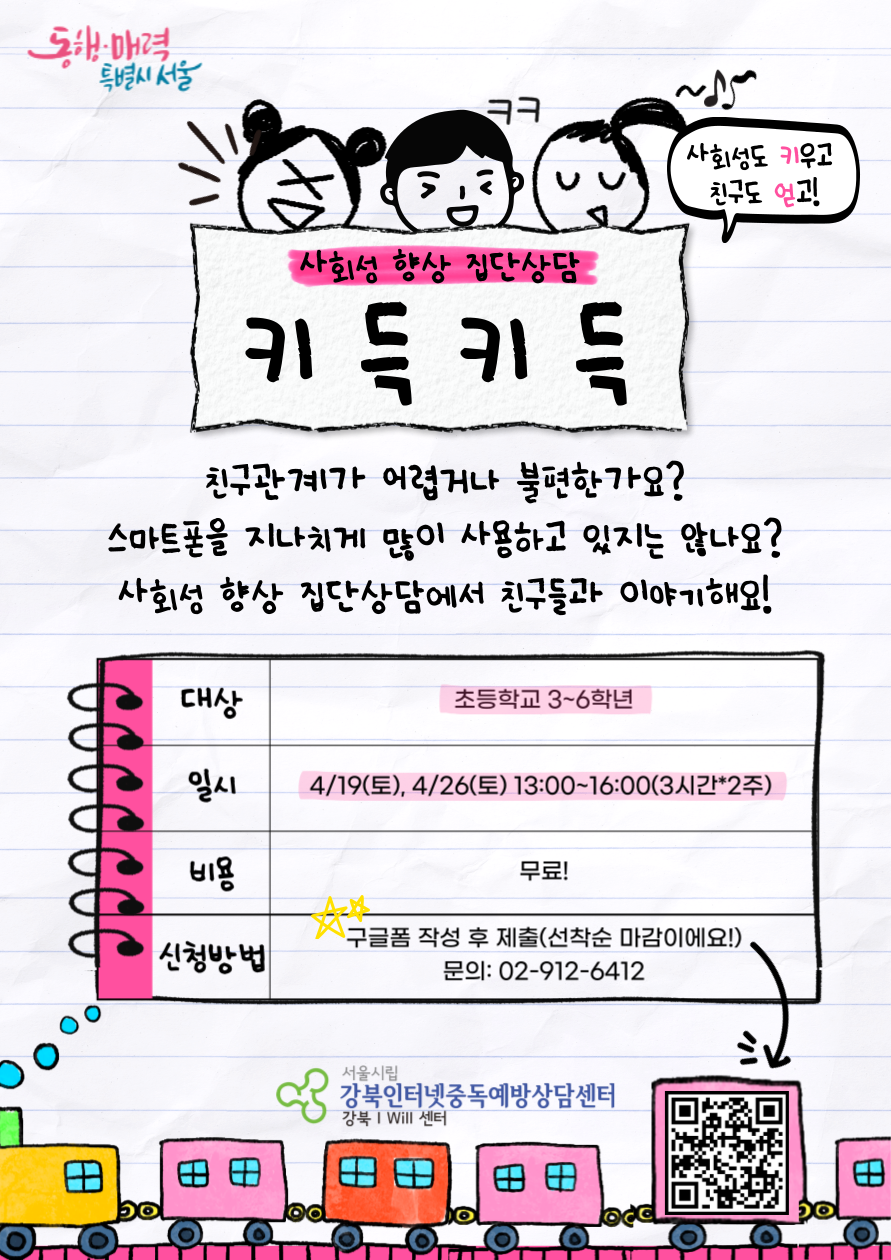 동행·매력
특별시 서울
ㅋㅋ
사회성도 키우고
친구도 얻고!
사회성 향상 집단상담
키득키득
친구관계가 어렵거나 불편한가요?
스마트폰을 지나치게 많이 사용하고 있지는 않나요?
사회성 향상 집단상담에서 친구들과 이야기해요!
대상 초등학교 3~6학년
일시 4/19(토), 4/26(토) 13:00~16:00(3시간*2주)
비용 무료!
신청방법 구글폼 작성 후 제출(선착순 마감이에요!)
문의: 02-912-6412
서울시립
강북인터넷중독예방상담센터
강북 I Will 센터